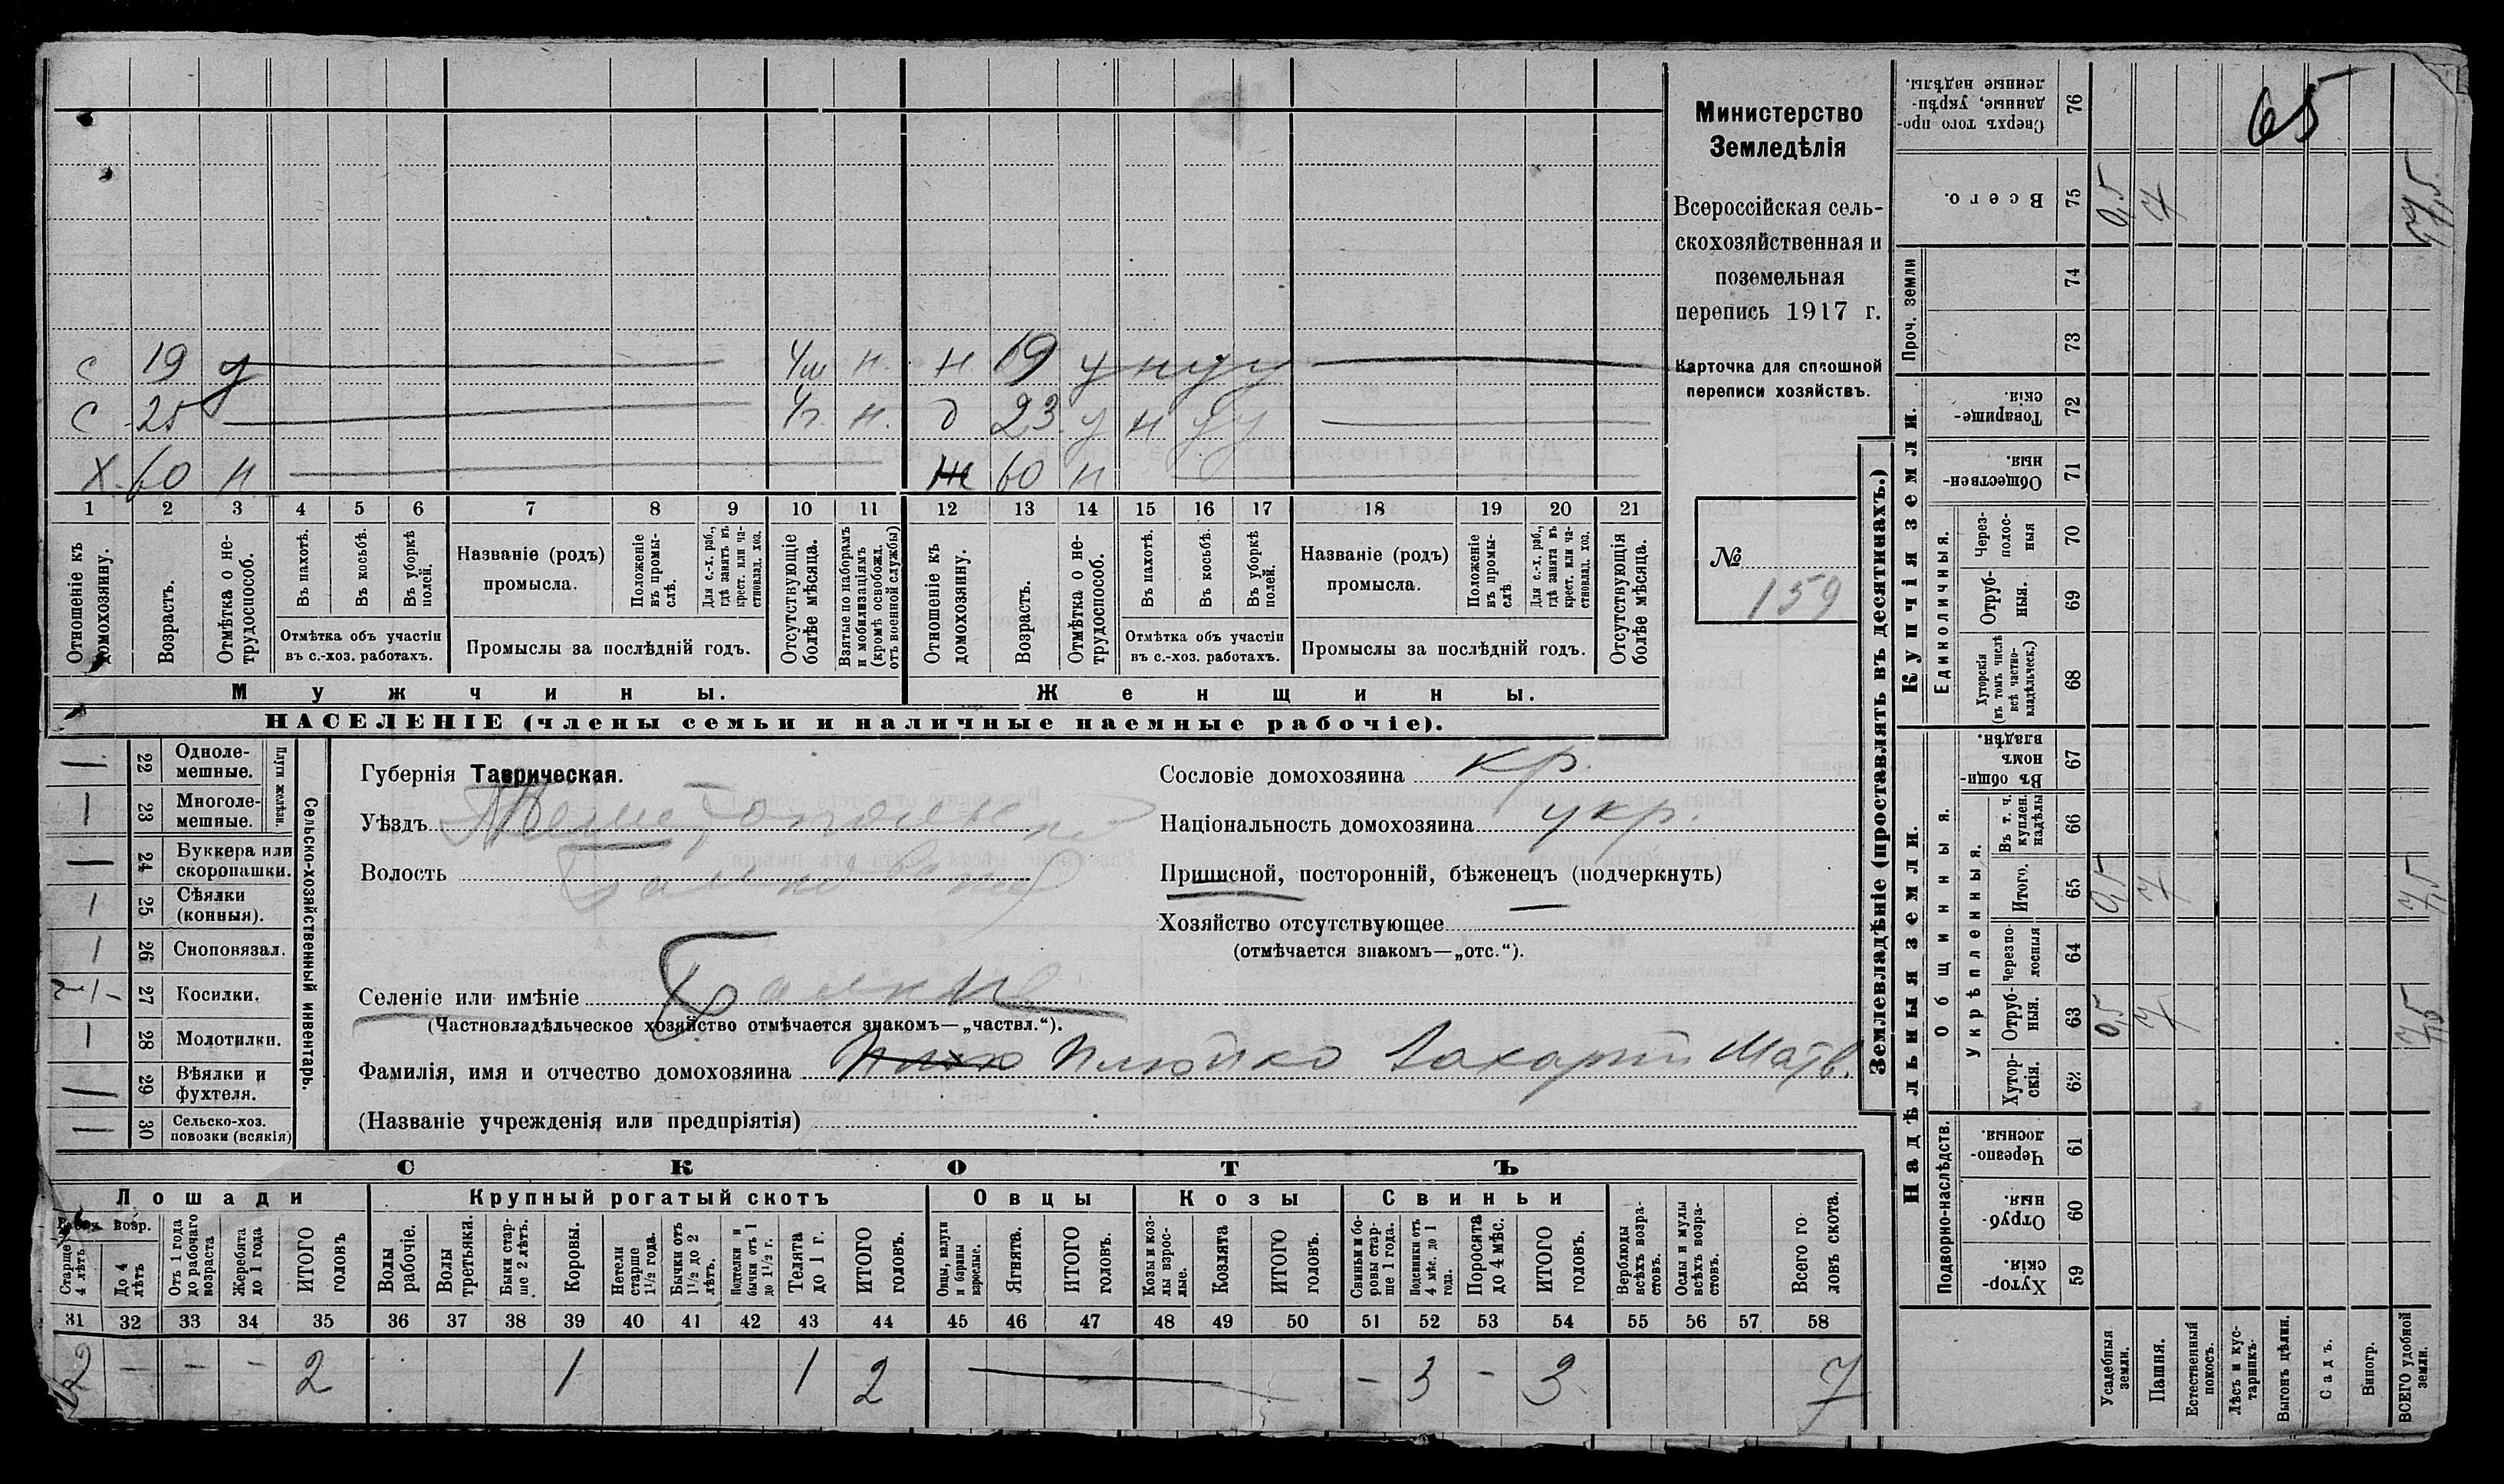 Министерство
Земледѣлія
Всероссійская сель-
скохозяйственная и
поземельная
перепись 1917 г.
Карточка для сплошной
переписи хозяйствъ.
№
159
65
с 19 у н. н 19 у н у у
с 25 н. д 23 у н у у
х. 60 н ж 60 н
1 2 3 4 5 6 7 8 9 10 11 12 13 14 15 16 17 18 19 20 21
Отношеніе къ домохозяину.
Возрастъ.
Отмѣтка о не-трудоспособ.
Въ пахотѣ.
Въ косьбѣ.
Въ уборкѣ полей.
Отмѣтка объ участіи
въ с.-хоз. работахъ.
Названіе (родъ)
промысла.
Положеніе въ промы-слѣ.
Для с.-х. раб., гдѣ занятъ въ крест. или ча-стновлад. хоз.
Промыслы за послѣдній годъ.
Отсутствующіе болѣе мѣсяца.
Взятые по наборамъ и мобилизаціямъ (кромѣ освобожд. отъ военной службы)
Отношеніе къ домохозяину.
Возрастъ.
Отмѣтка о не-трудоспособ.
Въ пахотѣ.
Въ косьбѣ.
Въ уборкѣ полей.
Отмѣтка объ участіи
въ с.-хоз. работахъ.
Названіе (родъ)
промысла.
Положеніе въ промы-слѣ
Для с.-х. раб., гдѣ занята въ крест. или ча-стновлад. хоз.
Промыслы за послѣдній годъ.
Отсутствующія болѣе мѣсяца.
Мужчины. Женщины.
НАСЕЛЕНІЕ (члены семьи и наличные наемные рабочіе).
22 Одноле-мешные.
23 Многоле-мешные.
Плуги желѣзн.
24 Буккера или скоропашки.
25 Сѣялки (конныя).
26 Сноповязал.
27 Косилки.
28 Молотилки.
29 Вѣялки и фухтеля.
30 Сельско-хоз. повозки (всякія)
Сельско-хозяйственный инвентарь.
Губернія Таврическая.
Уѣздъ Мелитопольскій
Волость Балковская
Селеніе или имѣніе Балки
(Частновладѣльческое хозяйство отмѣчается знакомъ—„частвл.“).
Фамилія, имя и отчество домохозяина Плюйко Захарій Матв.
(Названіе учрежденія или предпріятія)
Сословіе домохозяина кр.
Національность домохозяина укр.
Приписной, посторонній, бѣженецъ (подчеркнуть)
Хозяйство отсутствующее —
(отмѣчается знакомъ—„отс.“).
СКОТЪ
Лошади Крупный рогатый скотъ Овцы Козы Свиньи
Рабоч. возр.
Старше 4 лѣтъ
До 4 лѣтъ
Отъ 1 года до рабочаго возраста
Жеребята до 1 года
ИТОГО головъ
Волы рабочіе.
Волы третьяки.
Быки стар-ше 2 лѣтъ.
Коровы.
Нетели старше 1½ года.
Бычки отъ 1½ до 2 лѣтъ.
Подтелки и бычки отъ 1 до 1½ г.
Телята до 1 г.
ИТОГО головъ.
Овцы, валухи и бараны взрослые.
Ягнята.
ИТОГО головъ.
Козы и коз-лы взрос-лые.
Козлята
ИТОГО головъ.
Свиньи и бо-ровы стар-ше 1 года.
Подсвинки отъ 4 мѣс. до 1 года.
Поросята до 4 мѣс.
ИТОГО головъ.
Верблюды всѣхъ возра-стовъ.
Ослы и мулы всѣхъ возра-стовъ.
Всего го ловъ скота.
31 32 33 34 35 36 37 38 39 40 41 42 43 44 45 46 47 48 49 50 51 52 53 54 55 56 57 58
2 — — — 2 1 1 2 — 3 - 3 7
Землевладѣніе (проставлять въ десятинахъ.)
Надѣльныя земли. Купчія земли. Проч. земли
Подворно-наслѣдств.
Общинныя.
Укрѣпленныя.
Единоличныя.
59 Хутор-скія.
60 Отруб-ныя.
61 Черезпо-лосныя.
62 Хутор-скія.
63 Отруб-ныя. 0,5 7 7,5
64 Черезпо-лосныя
65 Итого. 0,5 7 7,5
66 Въ т. ч. куплен. надѣлы
67 Въ общи-номъ владѣн.
68 Хуторскія (въ томъ числѣ всѣ частно-владѣльческ.)
69 Отруб-ныя.
70 Через-полос-ныя
71 Обществен-ныя.
72 Товарище-скія.
73
74
75 Всего. 0,5 7 7,5
76 Сверхъ того про-данные, укрѣп-ленные надѣлы.
Усадебныя земли.
Пашня.
Естественный покосъ.
Лѣсъ и кус-тарникъ.
Выгонъ цѣлин.
Садъ.
Виногр.
ВСЕГО удобной земли.